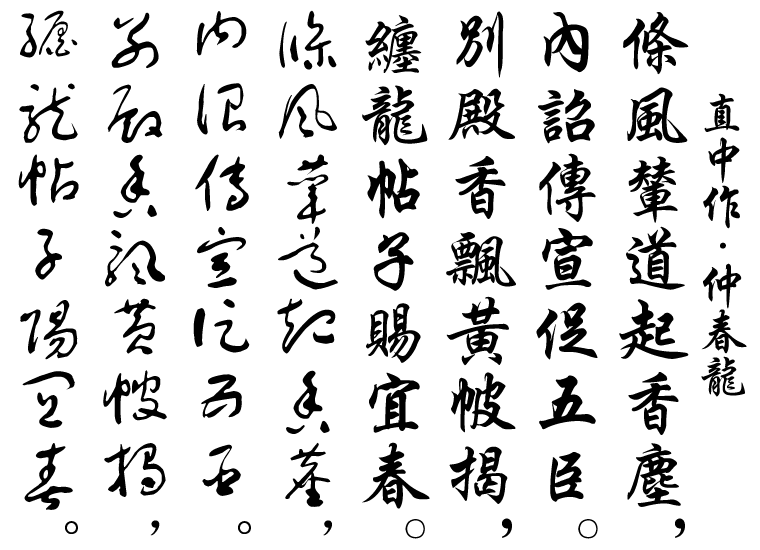 直中作·仲春龍
條風輦道起香塵，
內詔傳宣促五臣。
別殿香飄黃帔揭，
纏龍帖子賜宜春。
條風輦道起香塵，
內詔傳宣促五臣。
別殿香飄黃帔揭，
纏龍帖子賜宜春。